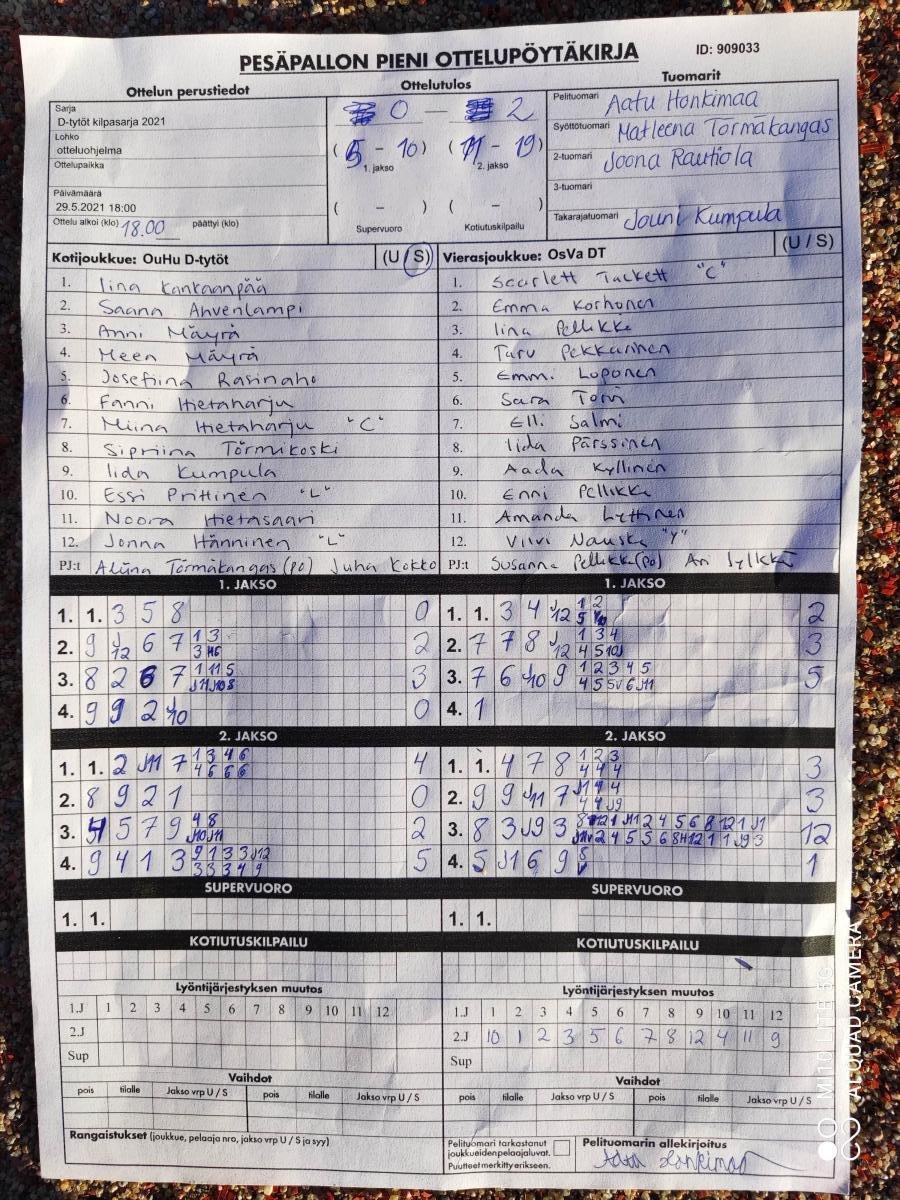 PESÄPALLON PIENI OTTELUPÖYTÄKIRJA
ID: 909033
Ottelun perustiedot
Ottelutulos
Tuomarit
Sarja
D-tytöt kilpasarja 2021
Lohko
otteluohjelma
Ottelupaikka
Päivämäärä
29.5.2021 18:00
Ottelu alkoi (klo) 18.00 päättyi (klo)
0 — 2
(5 - 10) (11 - 19)
1. jakso 2. jakso
( - ) ( - )
Supervuoro Kotiutuskilpailu
Pelituomari Aatu Honkimaa
Syöttötuomari Matleena Törmäkangas
2-tuomari Joona Rautiola
3-tuomari
Takarajatuomari Jouni Kumpula
Kotijoukkue: OuHu D-tytöt (U / S)
1. Iina Kankaanpää
2. Saana Ahvenlampi
3. Anni Mäyrä
4. Meen Mäyrä
5. Josefiina Rasinaho
6. Fanni Hietaharju
7. Miina Hietaharju "C"
8. Sipriina Törmikoski
9. Iida Kumpula
10. Essi Prittinen "L"
11. Noora Hietasaari
12. Jonna Hänninen "L"
PJ:t Aliina Törmäkangas (po) Juha Kokko
Vierasjoukkue: OsVa DT (U / S)
1. Scarlett Tackett "C"
2. Emma Korhonen
3. Iina Pellikka
4. Taru Pekkarinen
5. Emmi Loponen
6. Sara Torvi
7. Elli Salmi
8. Iida Pärssinen
9. Aada Kyllinen
10. Enni Pellikka
11. Amanda Lyttinen
12. Viivi Nauska "Y"
PJ:t Susanna Pellikka (po) Ari
1. JAKSO
1. 1. 3 5 8 0
2. 9 J12 6 7 2
3. 8 2 6 7 3
4. 9 9 2 J10 0
2. JAKSO
1. 1. 2 J11 7 1 3 4 6 4
4 6 6 6
2. 8 9 2 1 0
3. 4 5 7 9 4 8 2
J10 J11
4. 9 4 1 3 9 1 3 3 J12 5
3 3 3 4 9
SUPERVUORO
1. 1.
KOTIUTUSKILPAILU
1. JAKSO
1. 1. 3 4 J12 1 2 2
2. 7 7 8 J12 1 3 4 3
4 5 10J
3. 7 6 J10 9 1 2 3 4 5 5
4 5 5V 6 J11
4. 1
2. JAKSO
1. 1. 4 7 8 1 2 3 3
4 4 4
2. 9 9 J11 7 J11 4 4 3
4 4 J9
3. 8 3 J9 3 12
4. 5 J1 6 9 1
SUPERVUORO
1. 1.
KOTIUTUSKILPAILU
Lyöntijärjestyksen muutos
1.J 1 2 3 4 5 6 7 8 9 10 11 12
2.J
Sup
Vaihdot
pois tilalle Jakso vrp U / S pois tilalle Jakso vrp U / S
Lyöntijärjestyksen muutos
1.J 1 2 3 4 5 6 7 8 9 10 11 12
2.J 10 1 2 3 5 6 7 8 12 4 11 9
Sup
Vaihdot
pois tilalle Jakso vrp U / S pois tilalle Jakso vrp U / S
Rangaistukset (joukkue, pelaaja nro, jakso vrp U / S ja syy)
Pelituomari tarkastanut
joukkueiden pelaajaluvat.
Puutteet merkitty erikseen.
Pelituomarin allekirjoitus
Aatu Honkimaa
MI 10 LITE 5G
AI QUAD CAMERA